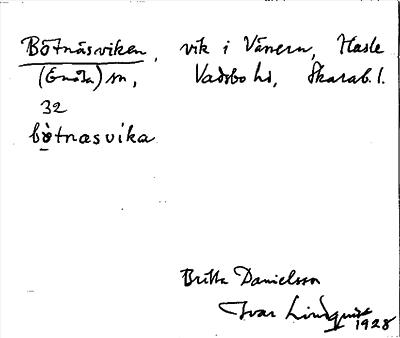 Bötnäsviken, vik i Vänern, Hasle
(Enåsa) sn, Vadsbo hd, Skarab. l.
32
bötnasvika
Britta Danielsson
Ivar Lindquist
1928